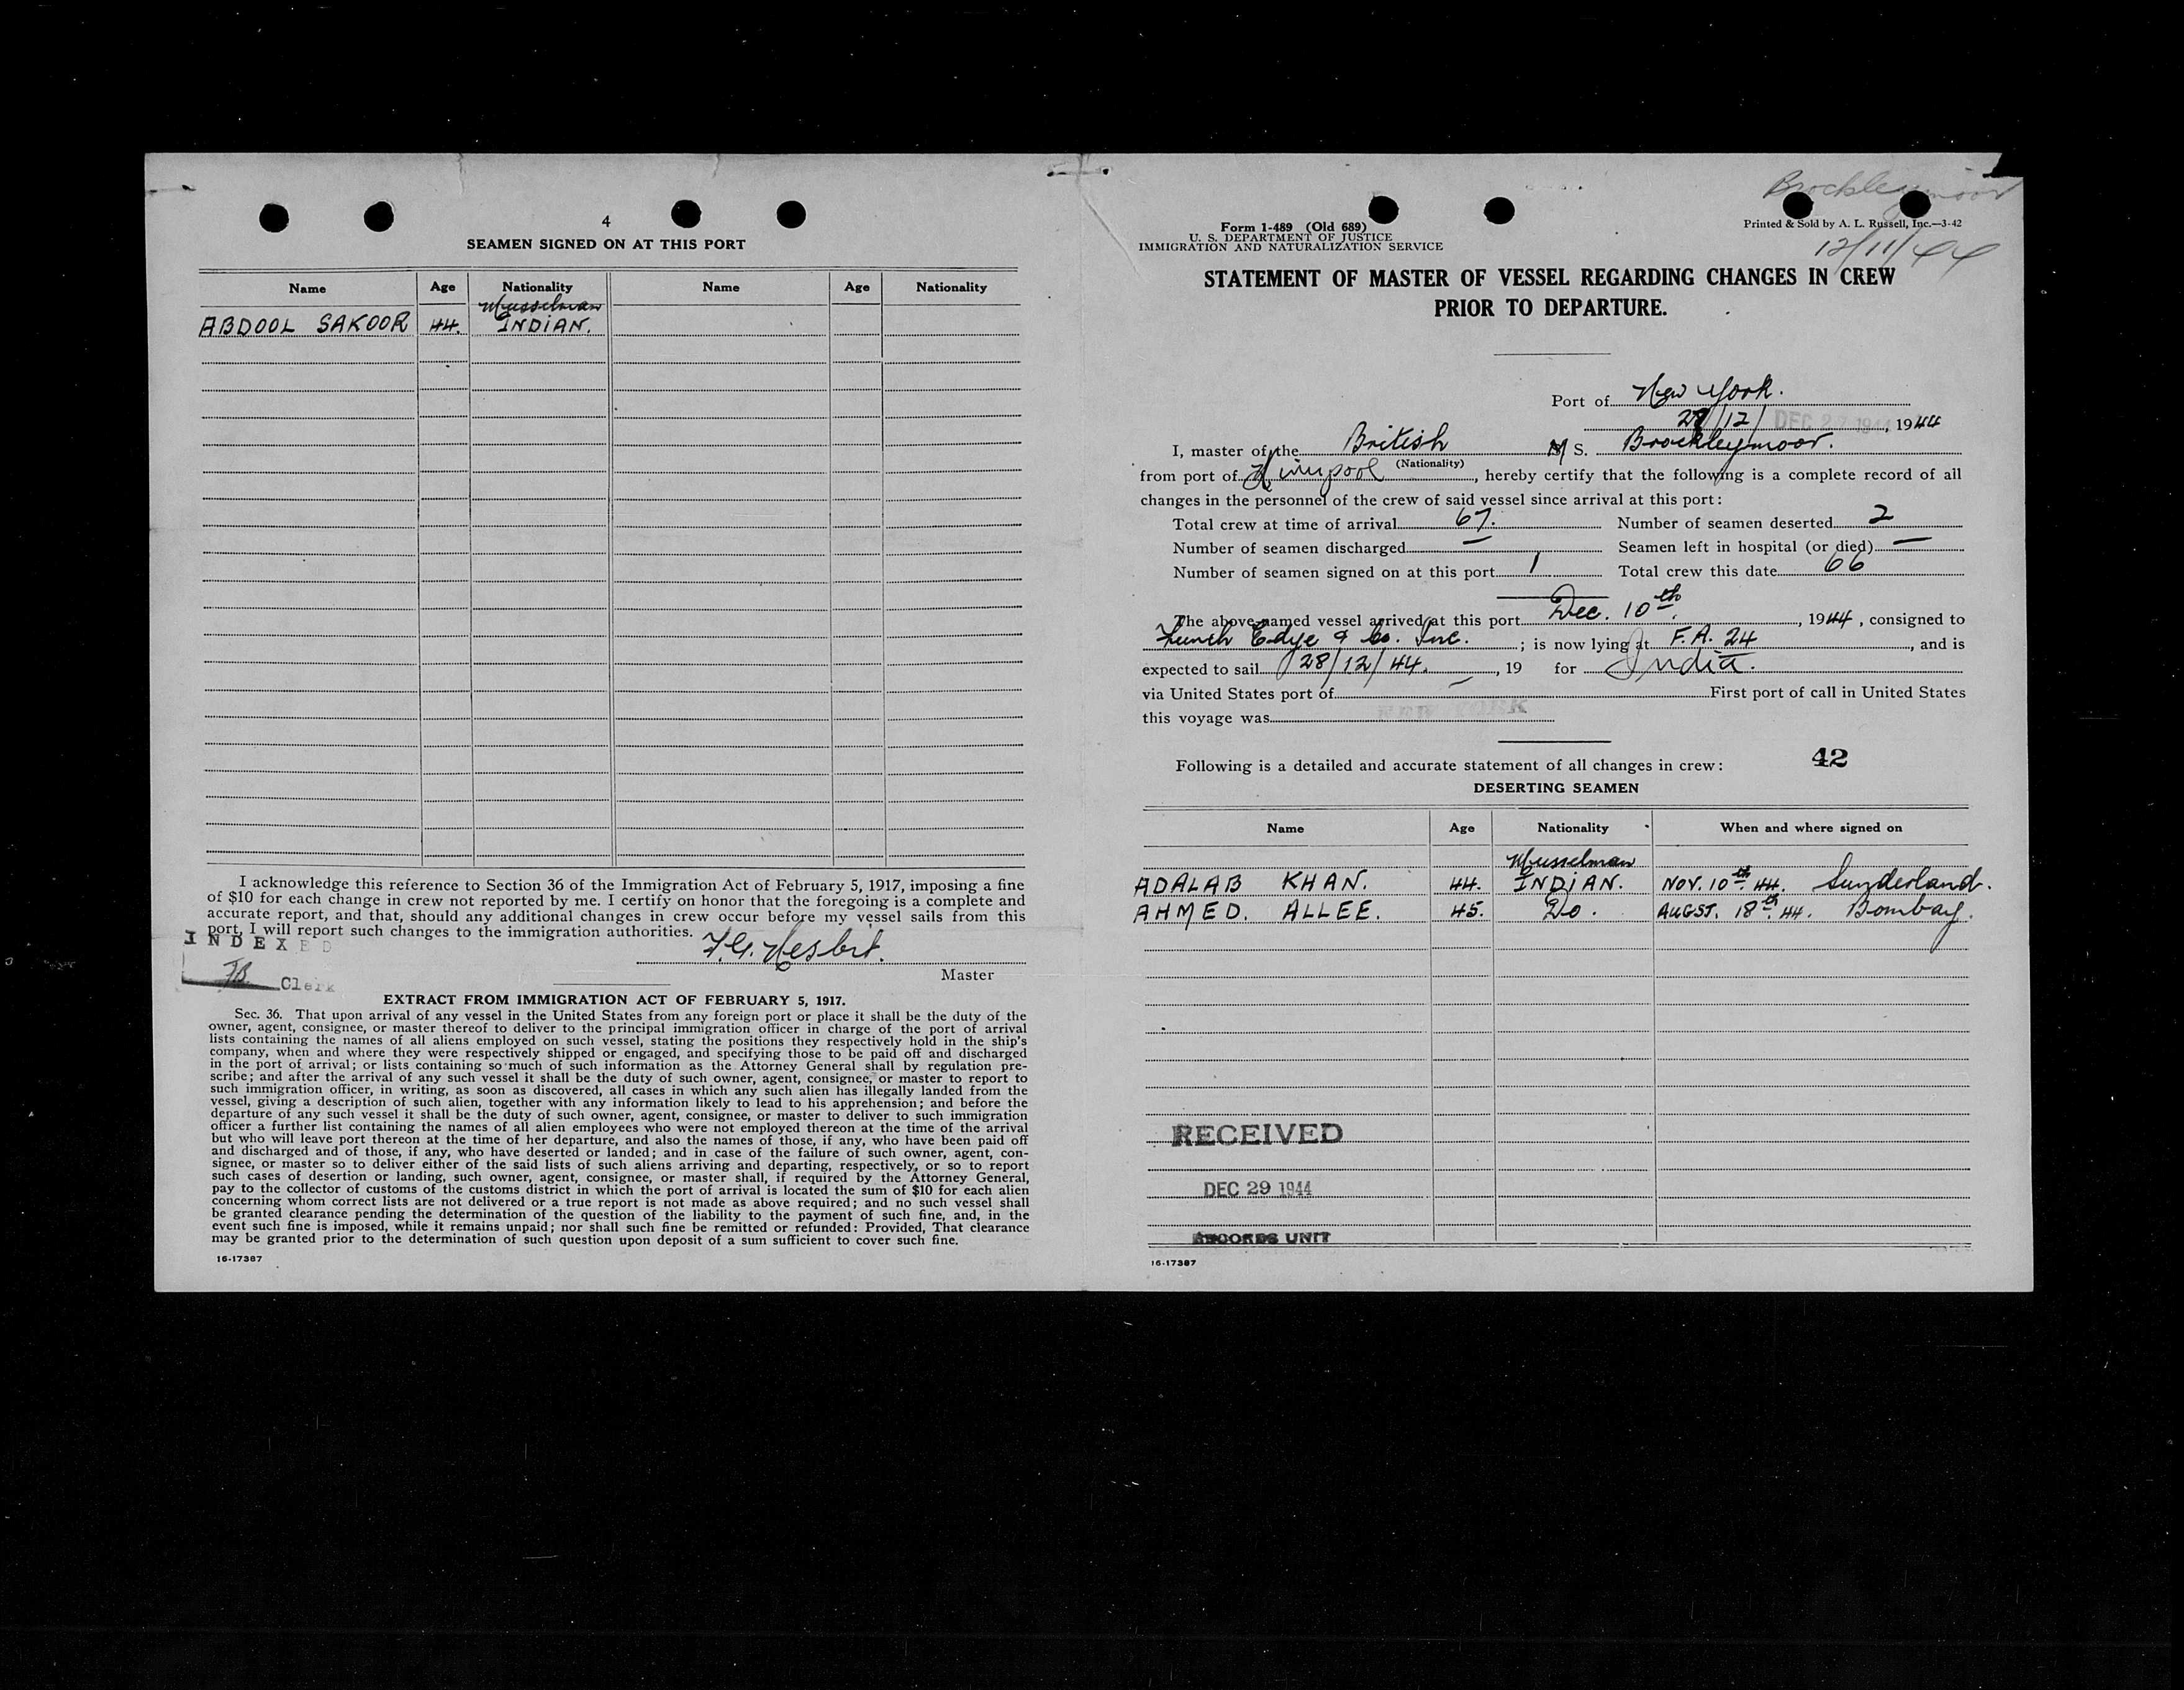 4
SEAMEN SIGNED ON AT THIS PORT
Name Age Nationality Name Age Nationality
Musselman
ABDOOL SAKOOR 44. INDIAN.
I acknowledge this reference to Section 36 of the Immigration Act of February 5, 1917, imposing a fine
of $10 for each change in crew not reported by me. I certify on honor that the foregoing is a complete and
accurate report, and that, should any additional changes in crew occur before my vessel sails from this
port, I will report such changes to the immigration authorities.
INDEXED
F.G. Nesbit.
Clerk
Master
EXTRACT FROM IMMIGRATION ACT OF FEBRUARY 5, 1917.
Sec. 36. That upon arrival of any vessel in the United States from any foreign port or place it shall be the duty of the
owner, agent, consignee, or master thereof to deliver to the principal immigration officer in charge of the port of arrival
lists containing the names of all aliens employed on such vessel, stating the positions they respectively hold in the ship's
company, when and where they were respectively shipped or engaged, and specifying those to be paid off and discharged
in the port of arrival; or lists containing so much of such information as the Attorney General shall by regulation pre-
scribe; and after the arrival of any such vessel it shall be the duty of such owner, agent, consignee, or master to report to
such immigration officer, in writing, as soon as discovered, all cases in which any such alien has illegally landed from the
vessel, giving a description of such alien, together with any information likely to lead to his apprehension; and before the
departure of any such vessel it shall be the duty of such owner, agent, consignee, or master to deliver to such immigration
officer a further list containing the names of all alien employees who were not employed thereon at the time of the arrival
but who will leave port thereon at the time of her departure, and also the names of those, if any, who have been paid off
and discharged and of those, if any, who have deserted or landed; and in case of the failure of such owner, agent, con-
signee, or master so to deliver either of the said lists of such aliens arriving and departing, respectively, or so to report
such cases of desertion or landing, such owner, agent, consignee, or master shall, if required by the Attorney General,
pay to the collector of customs of the customs district in which the port of arrival is located the sum of $10 for each alien
concerning whom correct lists are not delivered or a true report is not made as above required; and no such vessel shall
be granted clearance pending the determination of the question of the liability to the payment of such fine, and, in the
event such fine is imposed, while it remains unpaid; nor shall such fine be remitted or refunded: Provided, That clearance
may be granted prior to the determination of such question upon deposit of a sum sufficient to cover such fine.
16-17387
Brockleymoor
Form 1-489 (Old 689)
U. S. DEPARTMENT OF JUSTICE
IMMIGRATION AND NATURALIZATION SERVICE
Printed & Sold by A. L. Russell, Inc.—3-42
12/11/44
STATEMENT OF MASTER OF VESSEL REGARDING CHANGES IN CREW
PRIOR TO DEPARTURE.
Port of New York.
/12/ DEC 27 1944, 1944
I, master of the British M/S. Brockleymoor.
(Nationality)
from port of , hereby certify that the following is a complete record of all
changes in the personnel of the crew of said vessel since arrival at this port:
Total crew at time of arrival 67. Number of seamen deserted 2
Number of seamen discharged — Seamen left in hospital (or died) —
Number of seamen signed on at this port 1 Total crew this date 66
The above-named vessel arrived at this port Dec. 10th, 1944, consigned to
Funch Edye & Co. Inc. ; is now lying at F.A. 24, and is
expected to sail 28/12/44., 19 for India.
via United States port of — First port of call in United States
this voyage was NEW YORK
Following is a detailed and accurate statement of all changes in crew: 42
DESERTING SEAMEN
Name Age Nationality When and where signed on
Musselman
ADALAB KHAN. 44. INDIAN. NOV. 10th 44. Sunderland.
AHMED. ALLEE. 45. Do. AUGST. 18th 44. Bombay.
RECEIVED
DEC 29 1944
RECORDS UNIT
16-17387